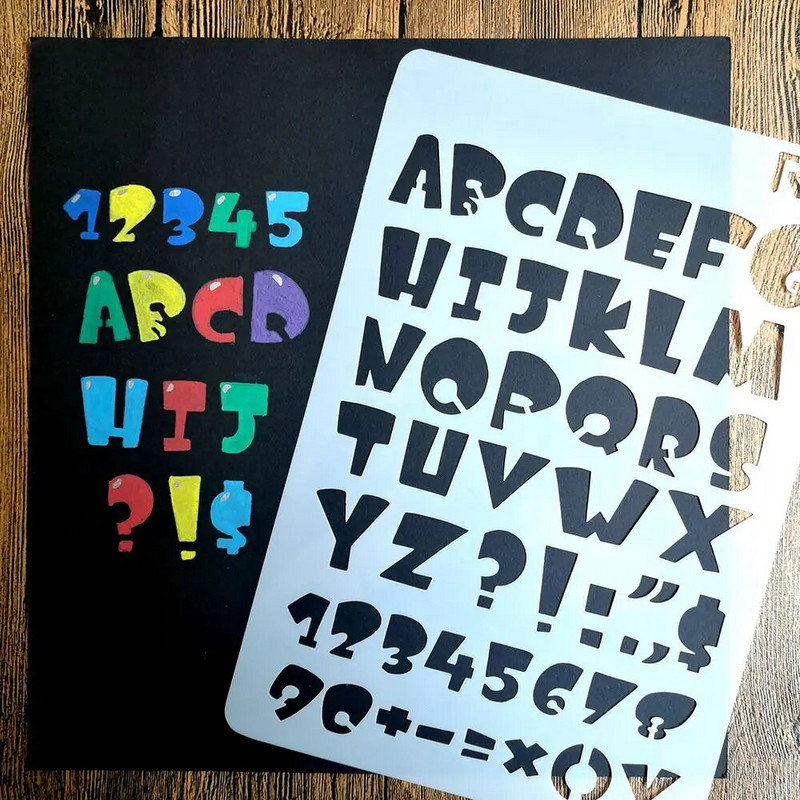 12345
ABCD
HIJ
?!$
ABCDEFG
HIJKLM
NOPQRS
TUVWX
YZ?!:.,”$
12345678
90+-=×()